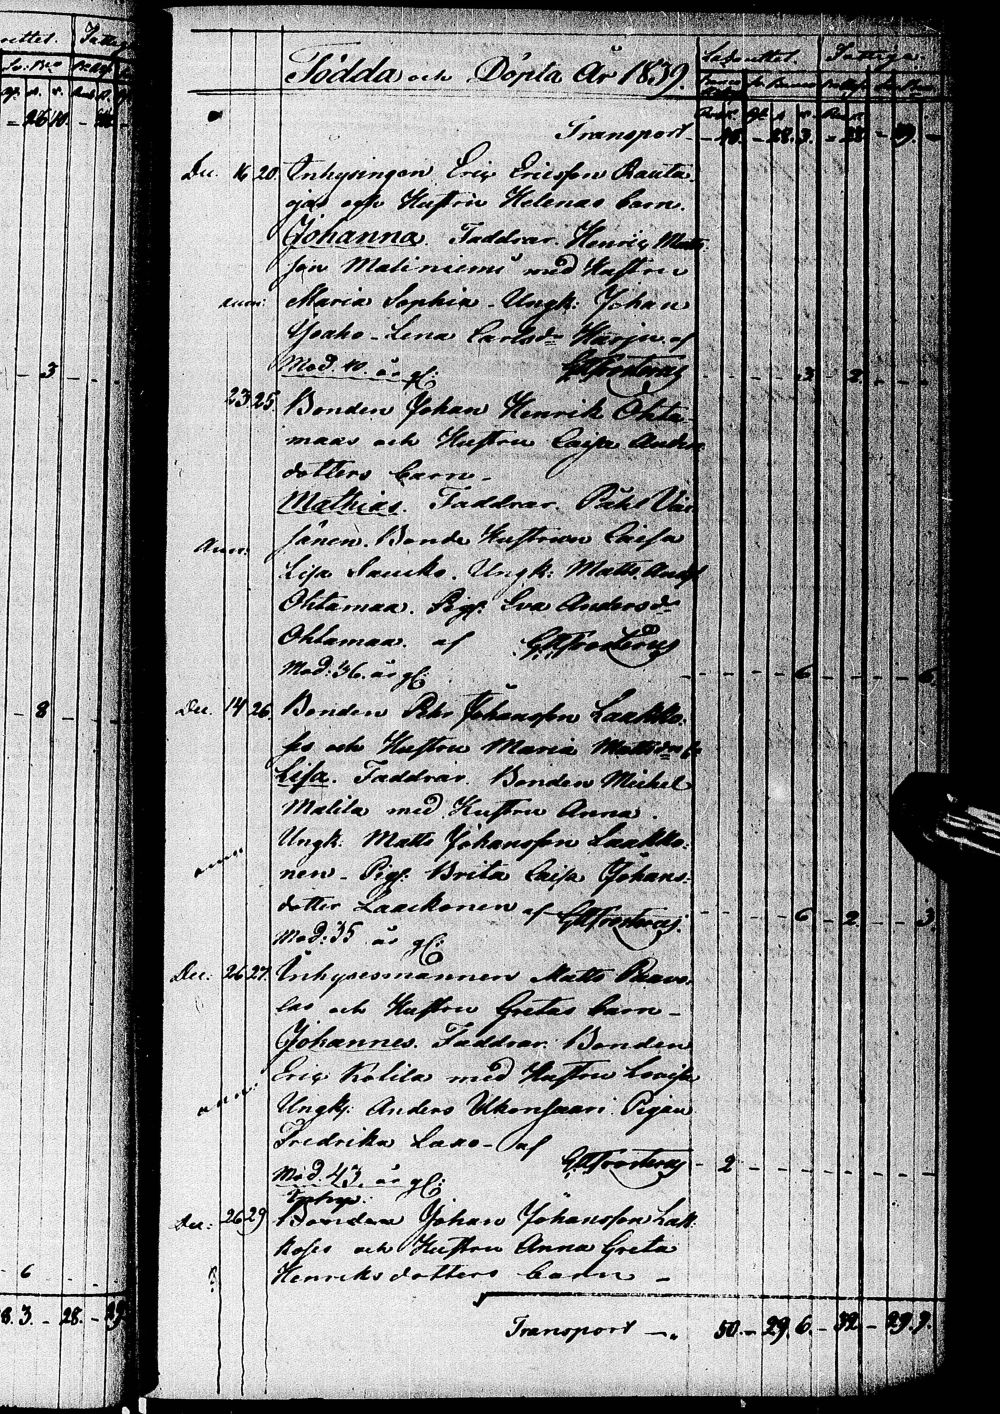 Födda och Döpta År 1839.
Transport
Dec. 16 20. Inhysingen Eric Ericsson Rauta-
ojas och Hustru Helenas barn.
Johanna. Faddrar. Henric Matts
son Maliniemi med Hustru
Maria Sophia - Ungk: Johan
Lena Carlsdr Harju af
Mod. 40. år gl: GHFrosterus
3 2
23 25 Bonden Johan Henrik Ohta-
maas och Hustru Caisa Anders
dotters barn -
Mathias. Faddrar Påhl Väi-
sänen. Bonde Hustrun Caisa
Lisa Saucko. Ungk: Matts Anderss
Ohtamaa. Pig. Eva Andersdr
Ohtamaa. af GHFrosterus
Mod: 36. år gl: 6 6
Dec. 14 26. Bonden Pehr Johansson Laakko-
ses och Hustru Maria Mattsdrs b.
Lisa. Faddrar. Bonden Michel
Malila med Hustru Anna.
Ungk: Matts Johansson Laakko-
nen - Pig: Brita Caisa Johans-
dotter Laackonen af GHFrosterus.
Mod: 35 år gl: 6 2 3
Dec. 26 27. Inhysesmannen Matts Paavo-
las och Hustru Gretas barn -
Johannes. Faddrar Bonden
Eric Kolila med Hustru Lovisa
Ungk: Anders Ukonsaari. Pigan
Fredrika Laxo - af
GHFrosterus 2
Mod. 43. år gl:
Inhys:
Dec: 26 29 Bonden Johan Johansson Lak-
koses och Hustru Anna Greta
Henriksdotters barn -
Transport - 50. - 29. 6. - 32. - 29. 9.